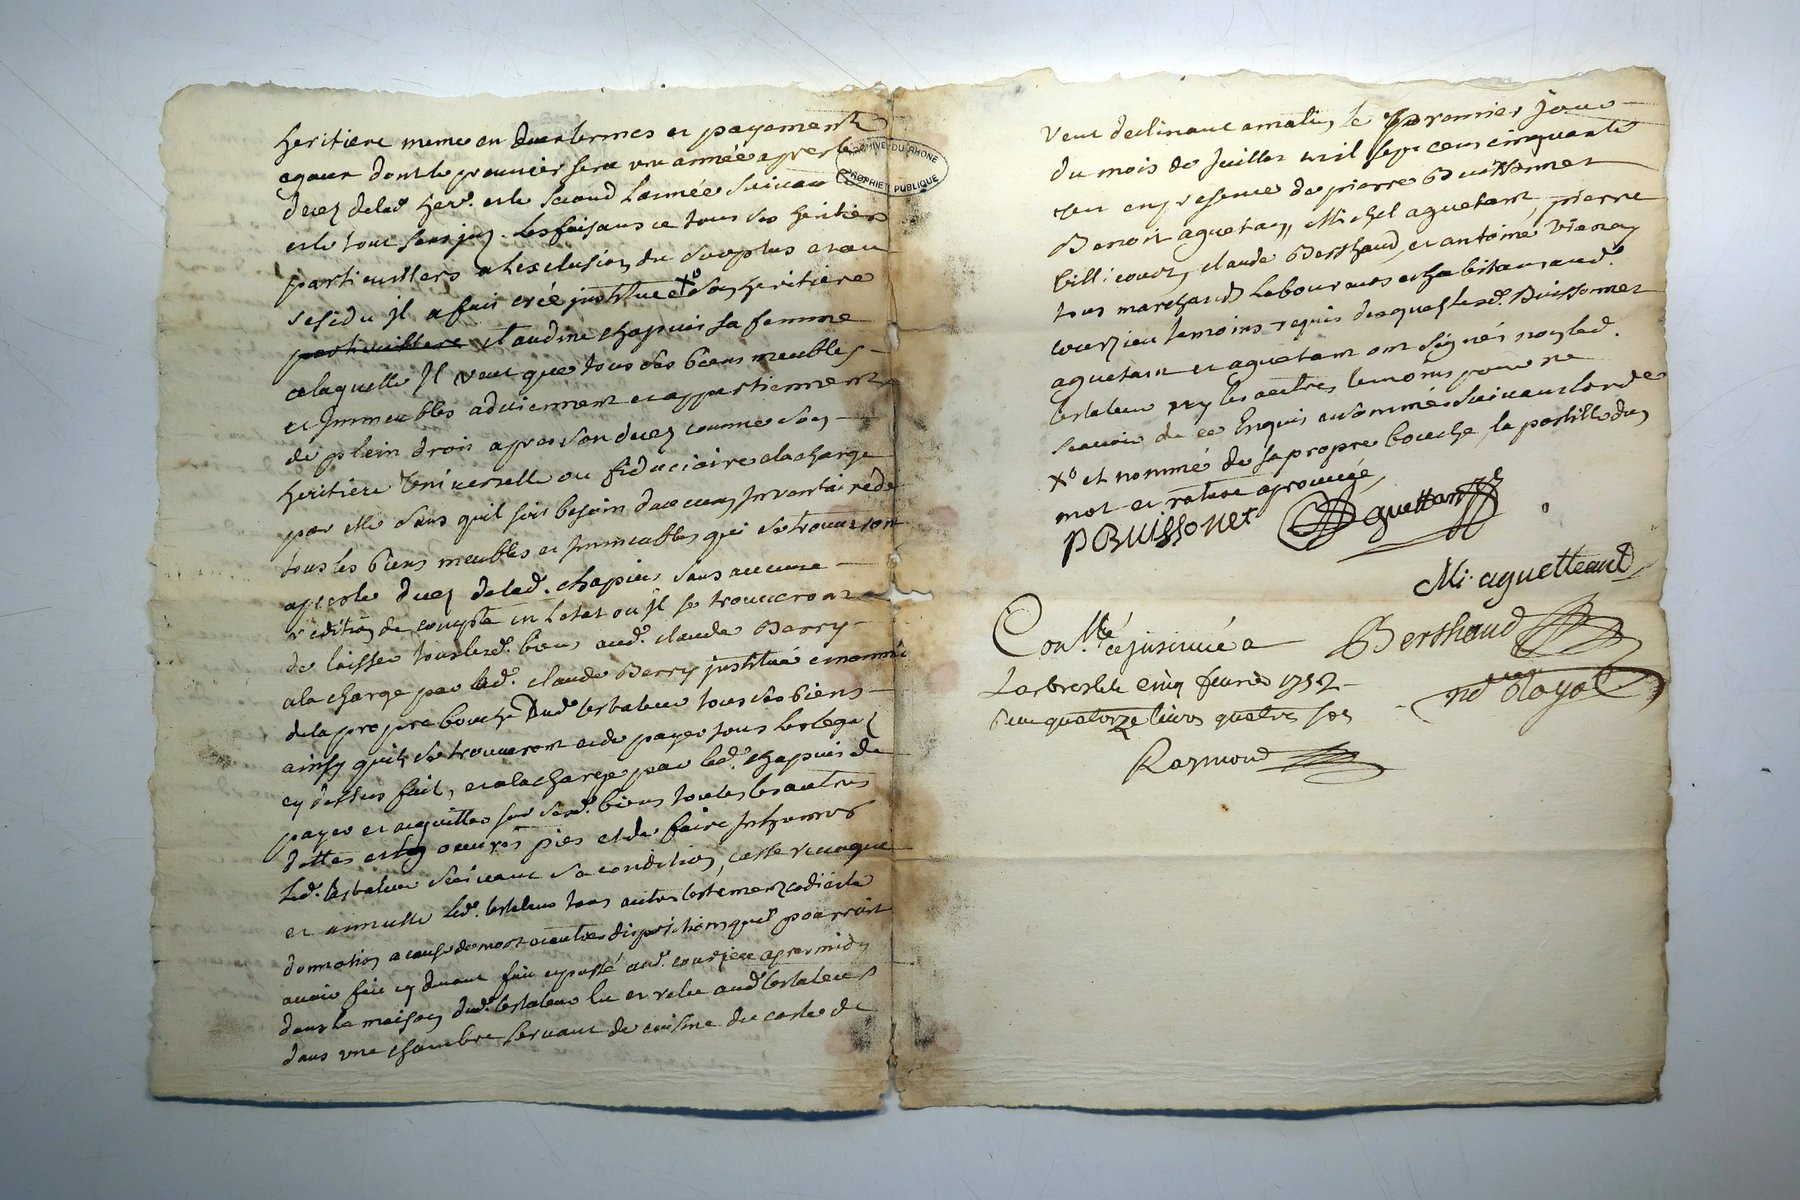 heritiere meme en deux termes et payements
egaux dont le premier sera une année apres le
decez delad. her. et le second lannée suivan
et le tout sans jnz. les faisans ce tous ses heritiers
particulliers a lexclusion du surplus et au
residu jl a fait créé jnstitué X° son heritiere
particulliere claudine chapuis sa femme
a laquelle Jl veut que tous ses biens meubles
et Jmmeubles advienment et appartienment
de plein droit apres son decez comme son
heritiere Universelle ou fiduciaire a la charge
par elle sans quil soit besoin daucun Jnventaire de
tous les biens meubles et Jmmeubles qui se trouveront
apres le decez delad. chapuis sans aucune
redition de compte en letat ou jl se trouveront
de laisser tous lesd. biens aud. claude Berry
a la charge par led. claude Berry jnstitué et nommé
de la propre bouche Dud. testateur tous ses biens
ainsy quils se trouveront et de payer tous les legaz
cy dessus fait, et a la charge par lad. chapuis de
payer et acquitter sur sesd. biens toutes les autres
dettes et les oeuvres pies et de faire Jnhumer
led. testateur suivant sa condition, casse revoque
et annulle led. testateur tous autres testemenz codicile
donnation a cause de mort et autres dispositions quil pourroit
avoir fait cy devant fait et passé aud. courzieu apres midy
dans la maison dud. testateur lu et relu aud. testateur
dans une chambre servant de cuisine du costé de
vent declinant a matin le premier jour
du mois de Juillet mil sept cens cinquante
en presence de pierre Buissonnet
Benoit aguetan, Michel aguetant pierre
billicoux, claude Berthaud, et antoine
tous marchands laboureurs et habitans aud.
courzieu temoins requis desquels led. Buissonnet
aguetant et aguetant ont signés non led.
testateur ny les autres temoins pour ne
scavoir de ce Enquis et sommés suivant lorde
X° et nommé de sa propre bouche, la postille dun
mot et rature aprouvée
P Buissonet Aguettant
Mi. aguetteant
Con.lé et jnsinué a Berthaud
Larbresle le cinq fevrier 1752 no Royal
Reçu quatorze livres quatre sos
Raymond
ARCHIVE DU RHONE
PROPRIETE PUBLIQUE